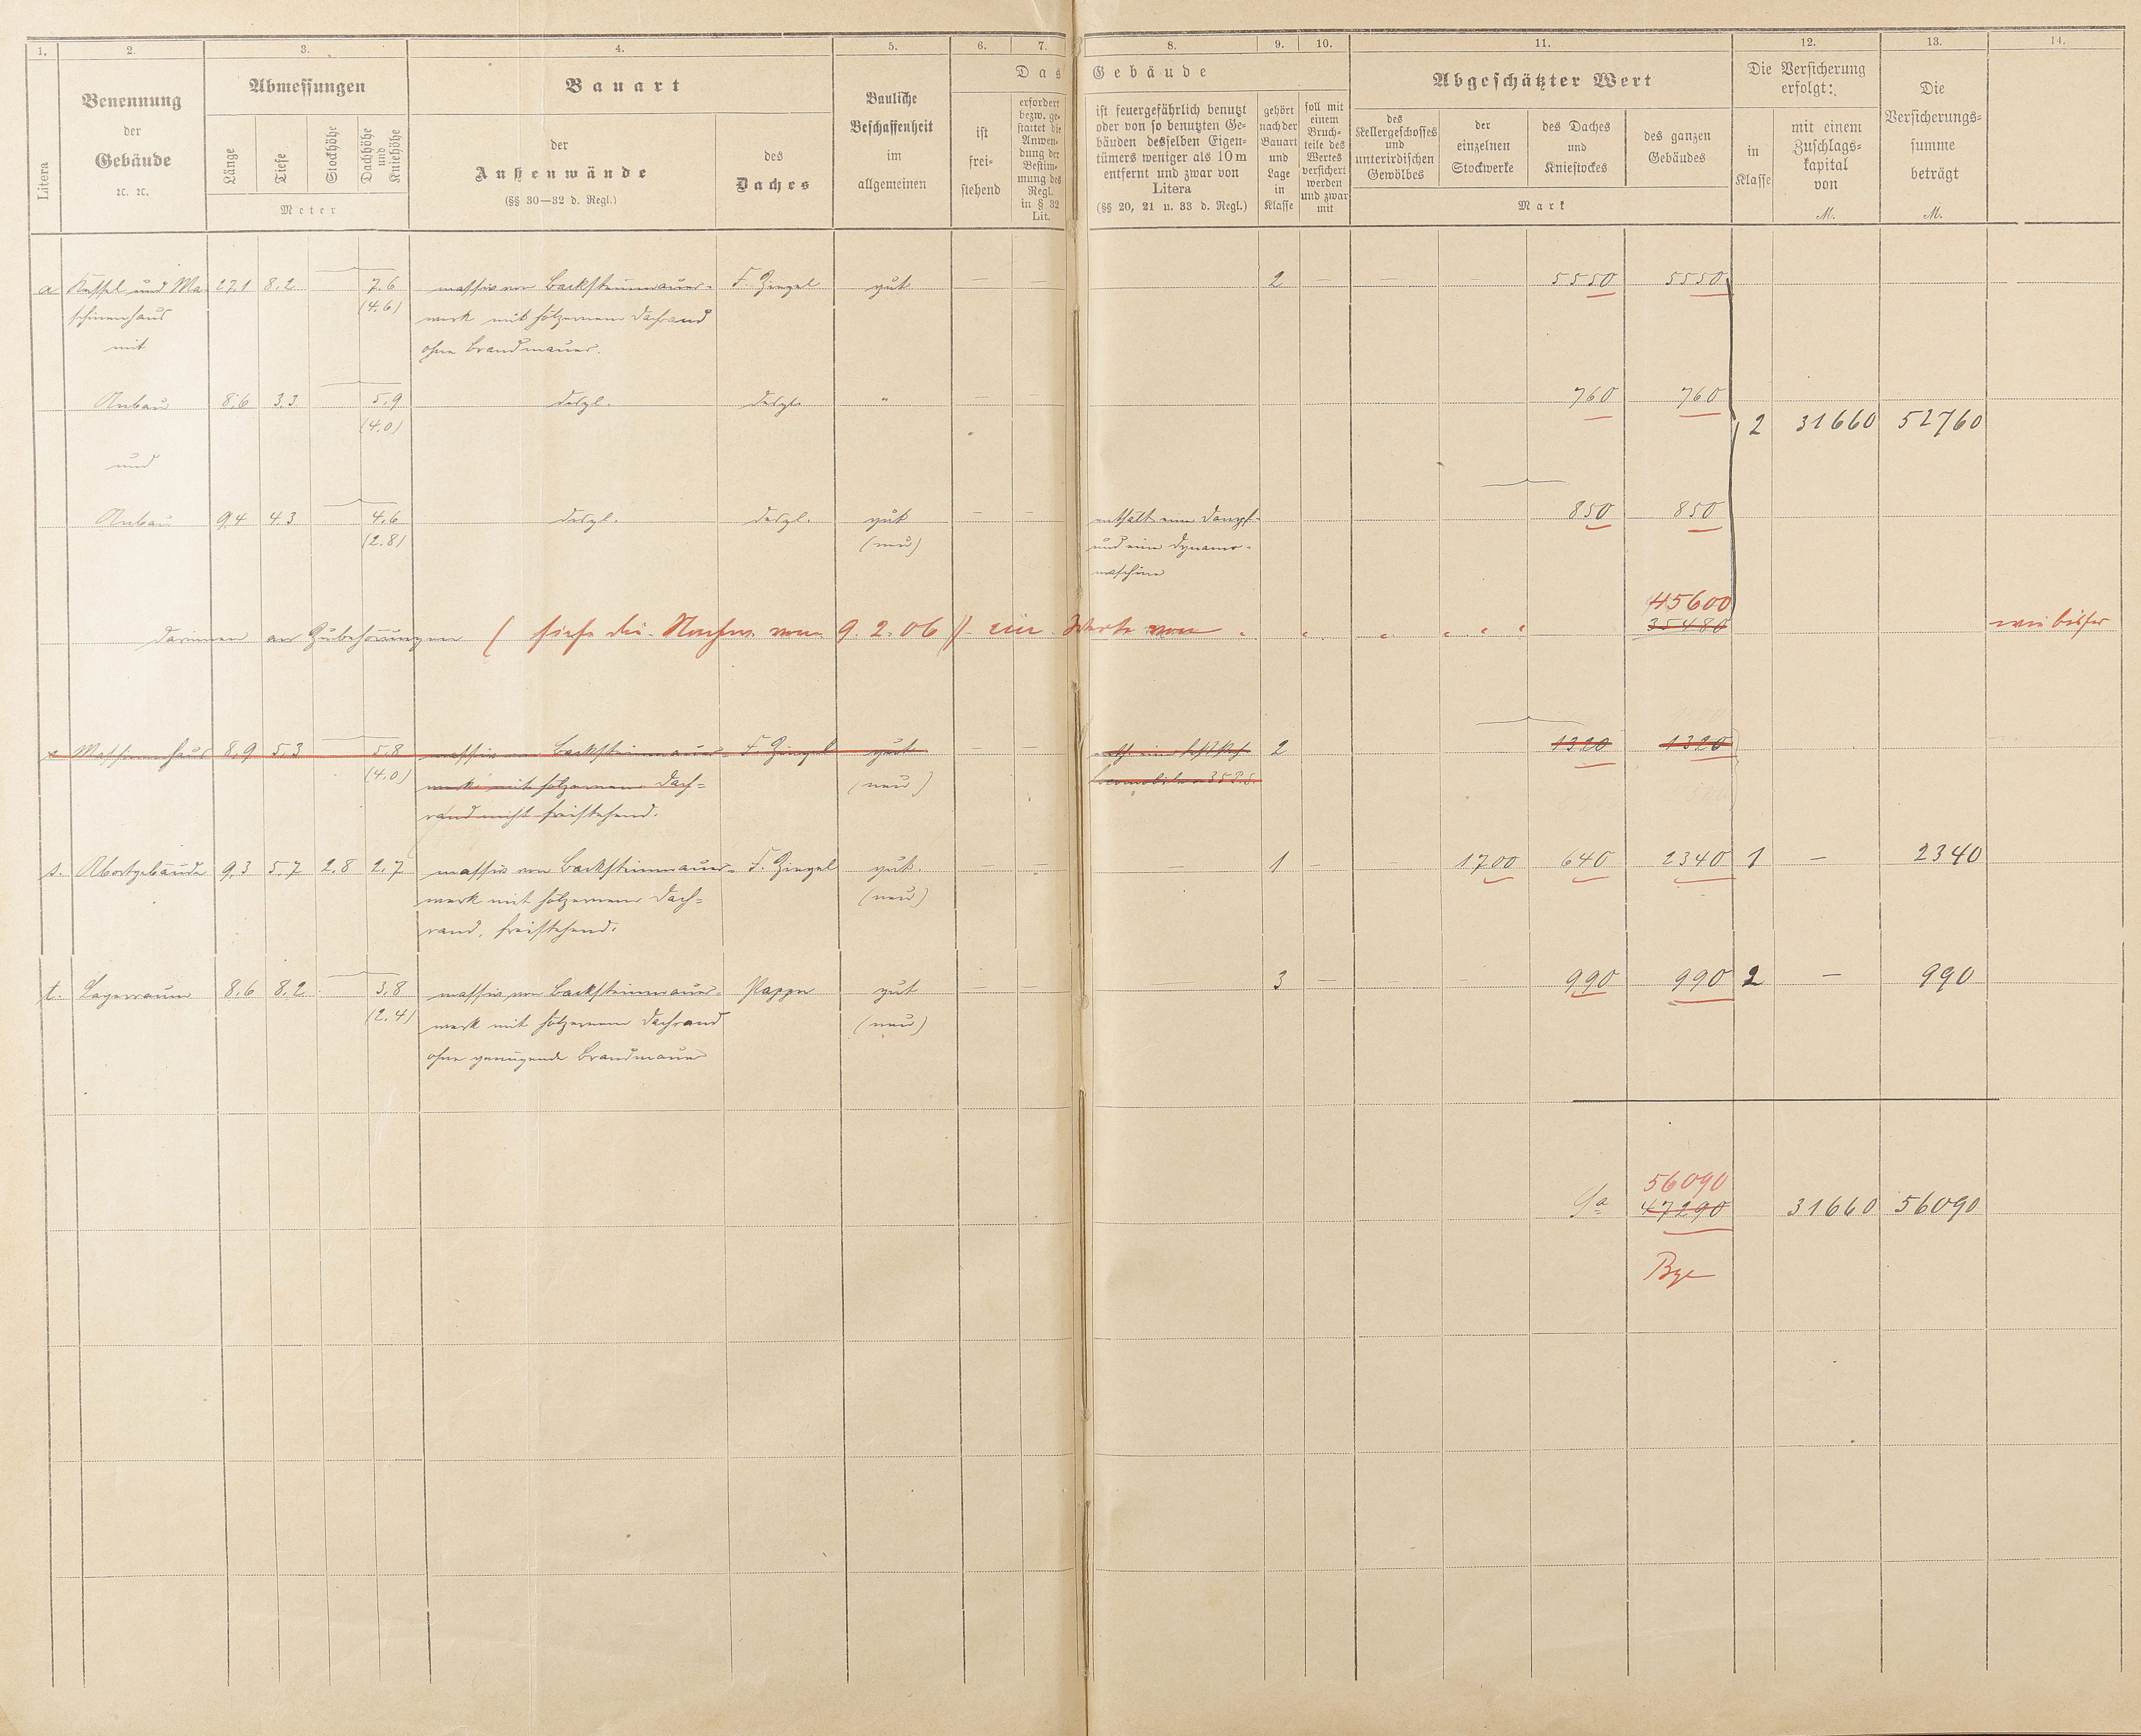 1. 2. 3. 4. 5. 6. 7. 8. 9. 10. 11. 12. 13. 14.
Litera
Benennung
der
Gebäude
ꝛc. ꝛc.
Abmessungen
Länge
Tiefe
Stockhöhe
Dachhöhe
und
Kniehöhe
Meter
Bauart
der
Außenwände
(§§ 30—32 d. Regl.)
des
Daches
Bauliche
Beschaffenheit
im
allgemeinen
Das Gebäude
ist
frei-
stehend
erfordert
bezw. ge-
stattet die
Anwen-
dung der
Bestim-
mung des
Regl.
in § 32
Lit.
ist feuergefährlich benutzt
oder von so benutzten Ge-
bäuden desselben Eigen-
tümers weniger als 10 m
entfernt und zwar von
Litera
(§§ 20, 21 u. 33 d. Regl.)
gehört
nach der
Bauart
und
Lage
in
Klasse
soll mit
einem
Bruch-
teile des
Wertes
versichert
werden
und zwar
mit
Abgeschätzter Wert
des
Kellergeschosses
und
unterirdischen
Gewölbes
der
einzelnen
Stockwerke
des Daches
und
Kniestockes
des ganzen
Gebäudes
Mark
Die Versicherung
erfolgt:
in
Klasse
mit einem
Zuschlags-
kapital
von
M.
Die
Versicherungs-
summe
beträgt
M.
a Kessel und Ma- 27,1 8,2 — 7,6 massiv von Backsteinmauer- F. Ziegel gut — — 2 — — — 5550 5550
schinenhaus (4,6) werk mit hölzernem Dachrand
mit ohne Brandmauer.
Anbau 8,6 3,3 — 5,9 desgl. desgl. " — — 760 760
(4,0) 2 31660 52760
und
Anbau 9,4 4,3 — 4,6 desgl. desgl. gut — — enthält eine Dampf- 850 850
(2,8) (neu) und eine Dynamo-
maschine
45600
darinnen an Zubehörungen (siehe die Nachw. vom 9.2.06) ein Werte von " " " " " " 35480 wie bisher
8,9 5,3 — 5,8 massiv von Backsteinmauer- F. Ziegel gut — — 2 1320 1320
(4,0) werk mit hölzernem Dach- (neu) Locomobile 35 P.S.
rand nicht freistehend.
s. Abortgebäude 9,3 5,7 2,8 2,7 massiv von Backsteinmauer- F. Ziegel gut. — — — 1 — — 1700 640 2340 1 — 2340
werk mit hölzernem Dach- (neu)
rand, freistehend.
t. Lagerraum 8,6 8,2 — 3,8 massiv von Backsteinmauer- Pappe gut — — — 3 — — — 990 990 2 — 990
(2,4) werk mit hölzernem Dachrand (neu)
ohne genügende Brandmauer
56090
Sa 47290 31660 56090